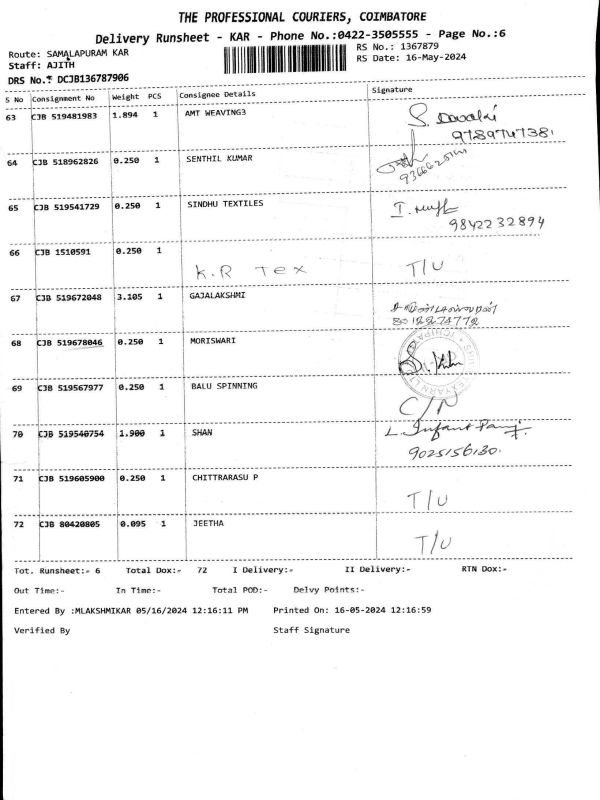 THE PROFESSIONAL COURIERS, COIMBATORE
Delivery Runsheet - KAR - Phone No.:0422-3505555 - Page No.:6
Route: SAMALAPURAM KAR
RS No.: 1367879
Staff: AJITH
RS Date: 16-May-2024
DRS No.: DCJB136787906
S No Consignment No Weight PCS Consignee Details Signature
63 CJB 519481983 1.894 1 AMT WEAVING3
64 CJB 518962826 0.250 1 SENTHIL KUMAR
65 CJB 519541729 0.250 1 SINDHU TEXTILES
9842232894
66 CJB 1510591 0.250 1 K.R Tex T/U
67 CJB 519672048 3.105 1 GAJALAKSHMI
68 CJB 519678046 0.250 1 MORISWARI
69 CJB 519567977 0.250 1 BALU SPINNING C/N
70 CJB 519540754 1.900 1 SHAN L. Infant Paul
9025156130.
71 CJB 519605900 0.250 1 CHITTRARASU P T/U
72 CJB 80420805 0.095 1 JEETHA T/U
Tot. Runsheet:- 6 Total Dox:- 72 I Delivery:- II Delivery:- RTN Dox:-
Out Time:- In Time:- Total POD:- Delvy Points:-
Entered By :MLAKSHMIKAR 05/16/2024 12:16:11 PM Printed On: 16-05-2024 12:16:59
Verified By Staff Signature